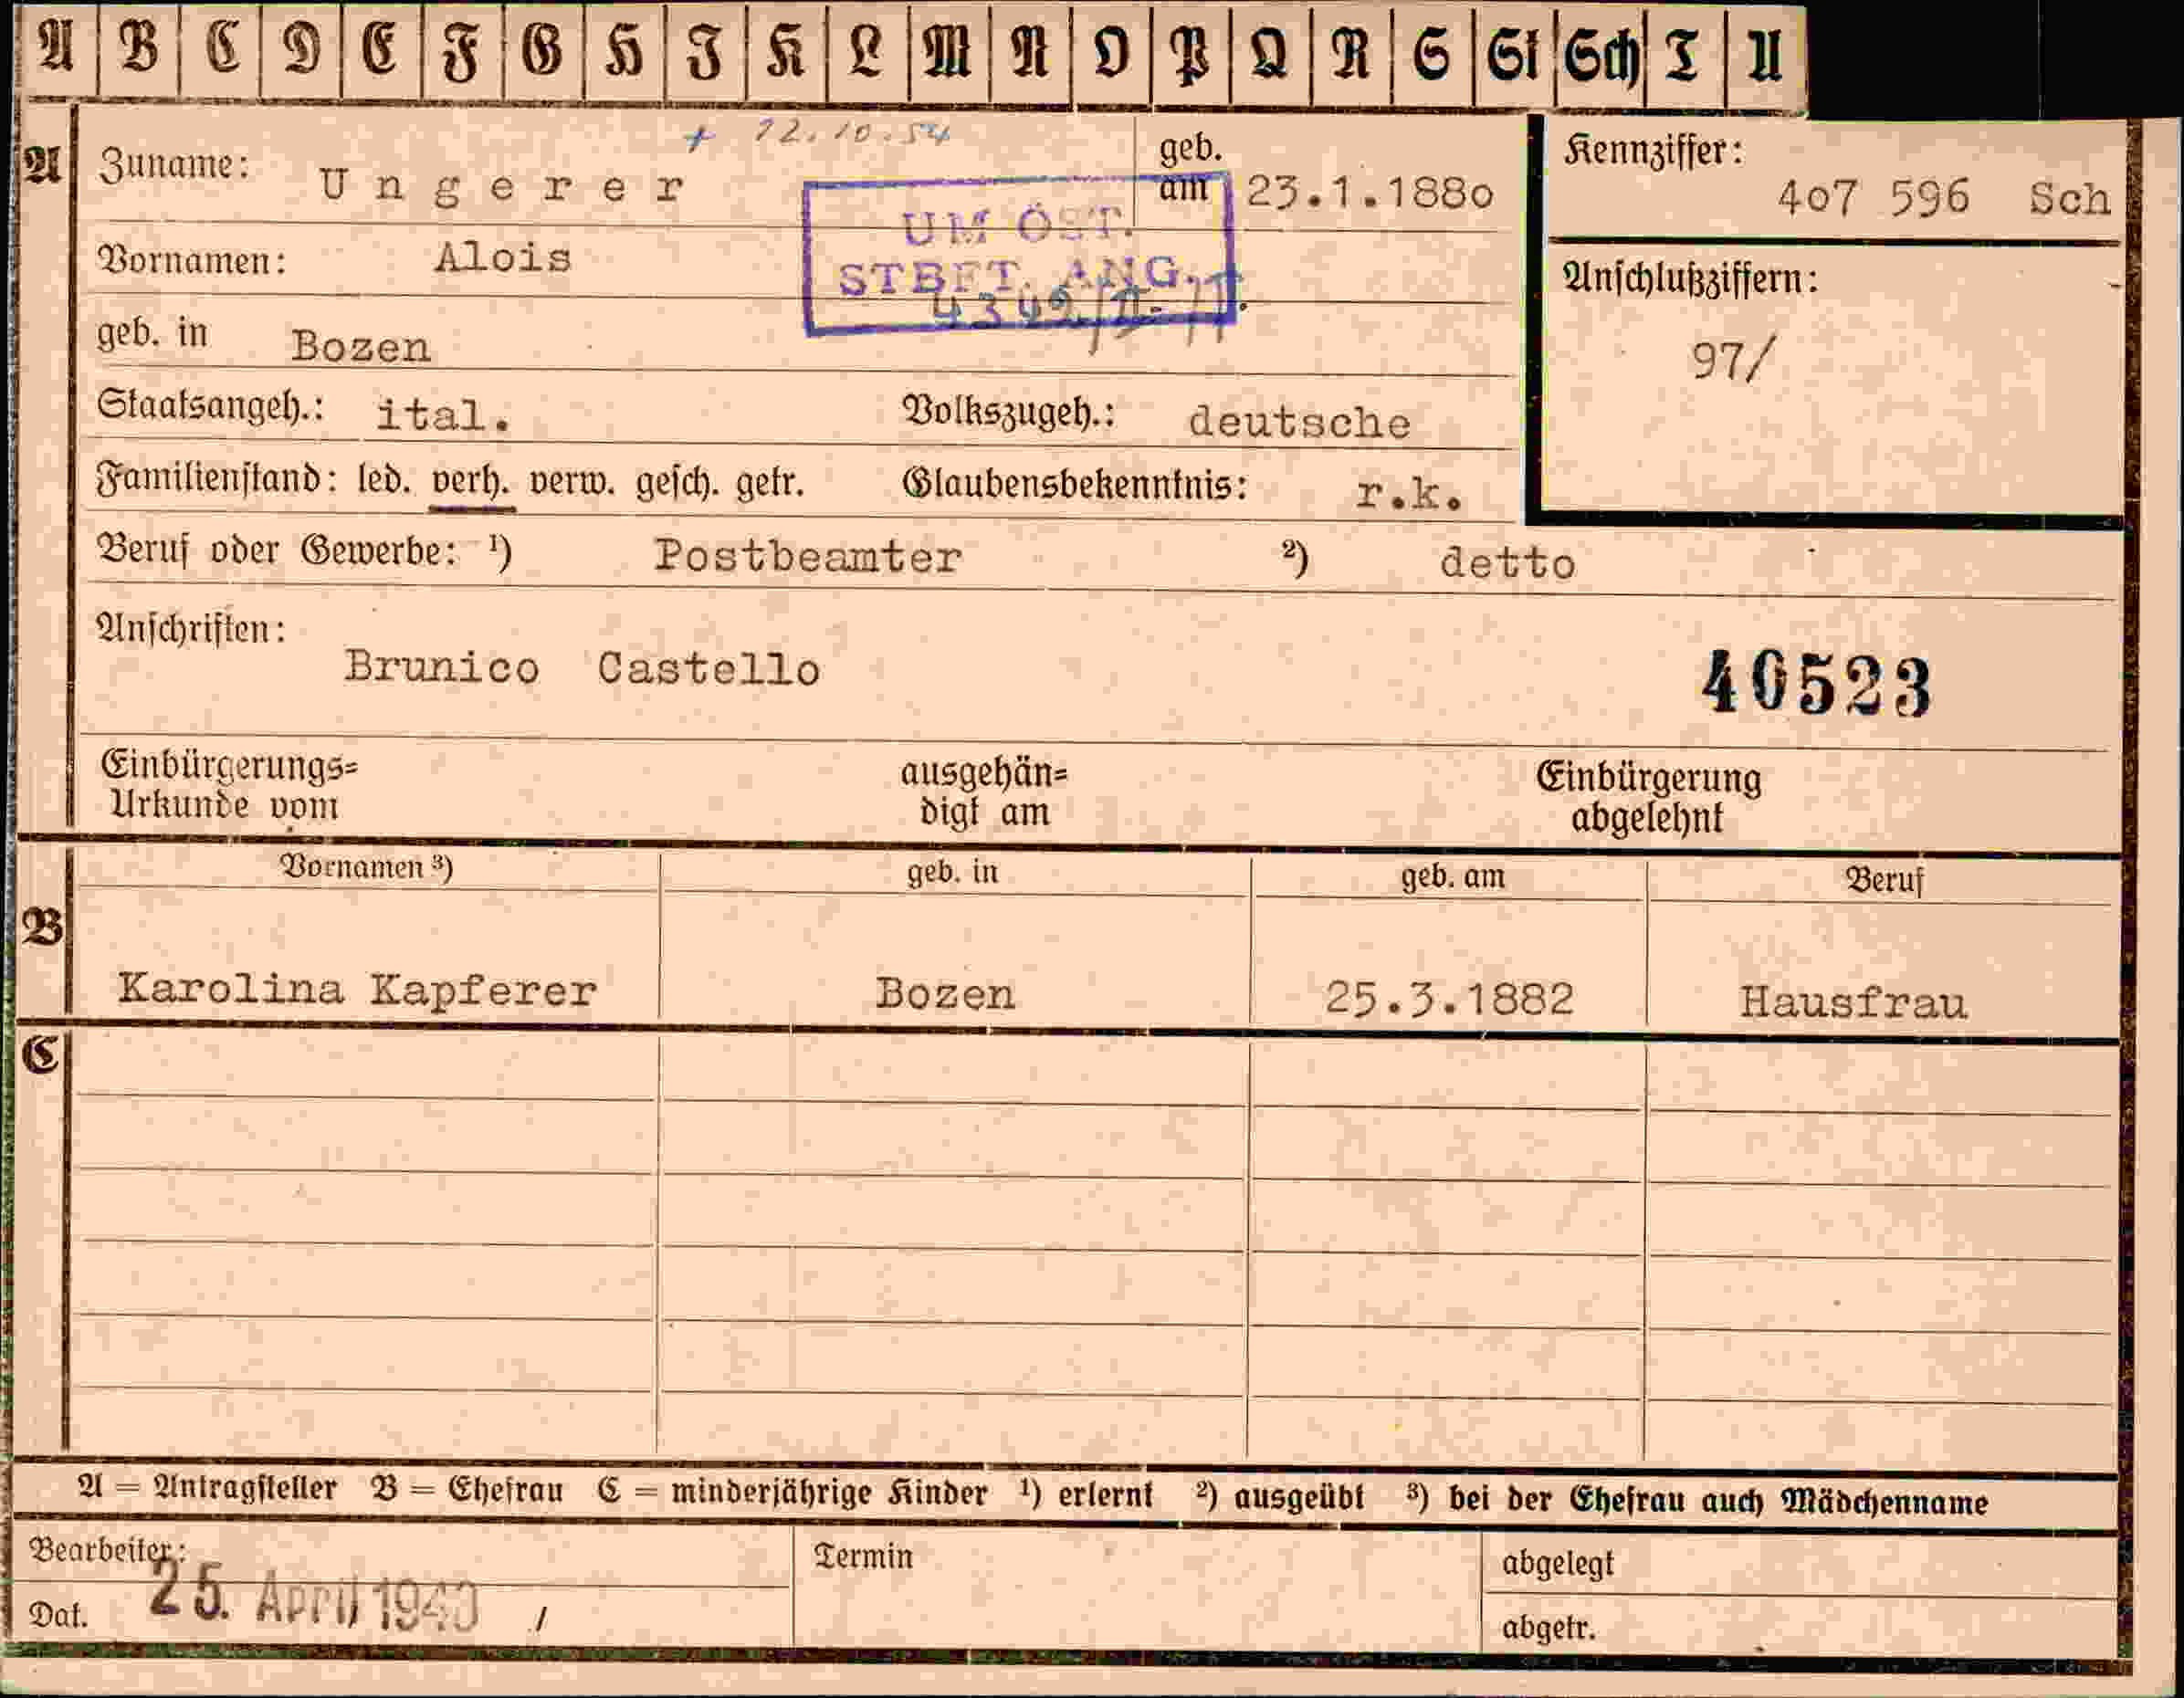 A B C D E F G H J K L M N O P Q R S St Sch T U
A
+ 12.10.54
Zuname: Ungerer
geb. am 23.1.1880
Kennziffer: 407 596 Sch
UM ÖST.
STBFT. ANG.
Vornamen: Alois
Anschlußziffern:
97/
geb. in Bozen
Staatsangeh.: ital. Volkszugeh.: deutsche
Familienstand: led. verh. verw. gesch. getr. Glaubensbekenntnis: r.k.
Beruf oder Gewerbe: ¹) Postbeamter ²) detto
Anschriften:
Brunico Castello
40523
Einbürgerungs=
Urkunde vom
ausgehän=
digt am
Einbürgerung
abgelehnt
B
Vornamen ³) geb. in geb. am Beruf
Karolina Kapferer Bozen 25.3.1882 Hausfrau
C
A = Antragsteller B = Ehefrau C = minderjährige Kinder ¹) erlernt ²) ausgeübt ³) bei der Ehefrau auch Mädchenname
Bearbeiter:
Termin
abgelegt
Dat. 25. April 1940 /
abgetr.